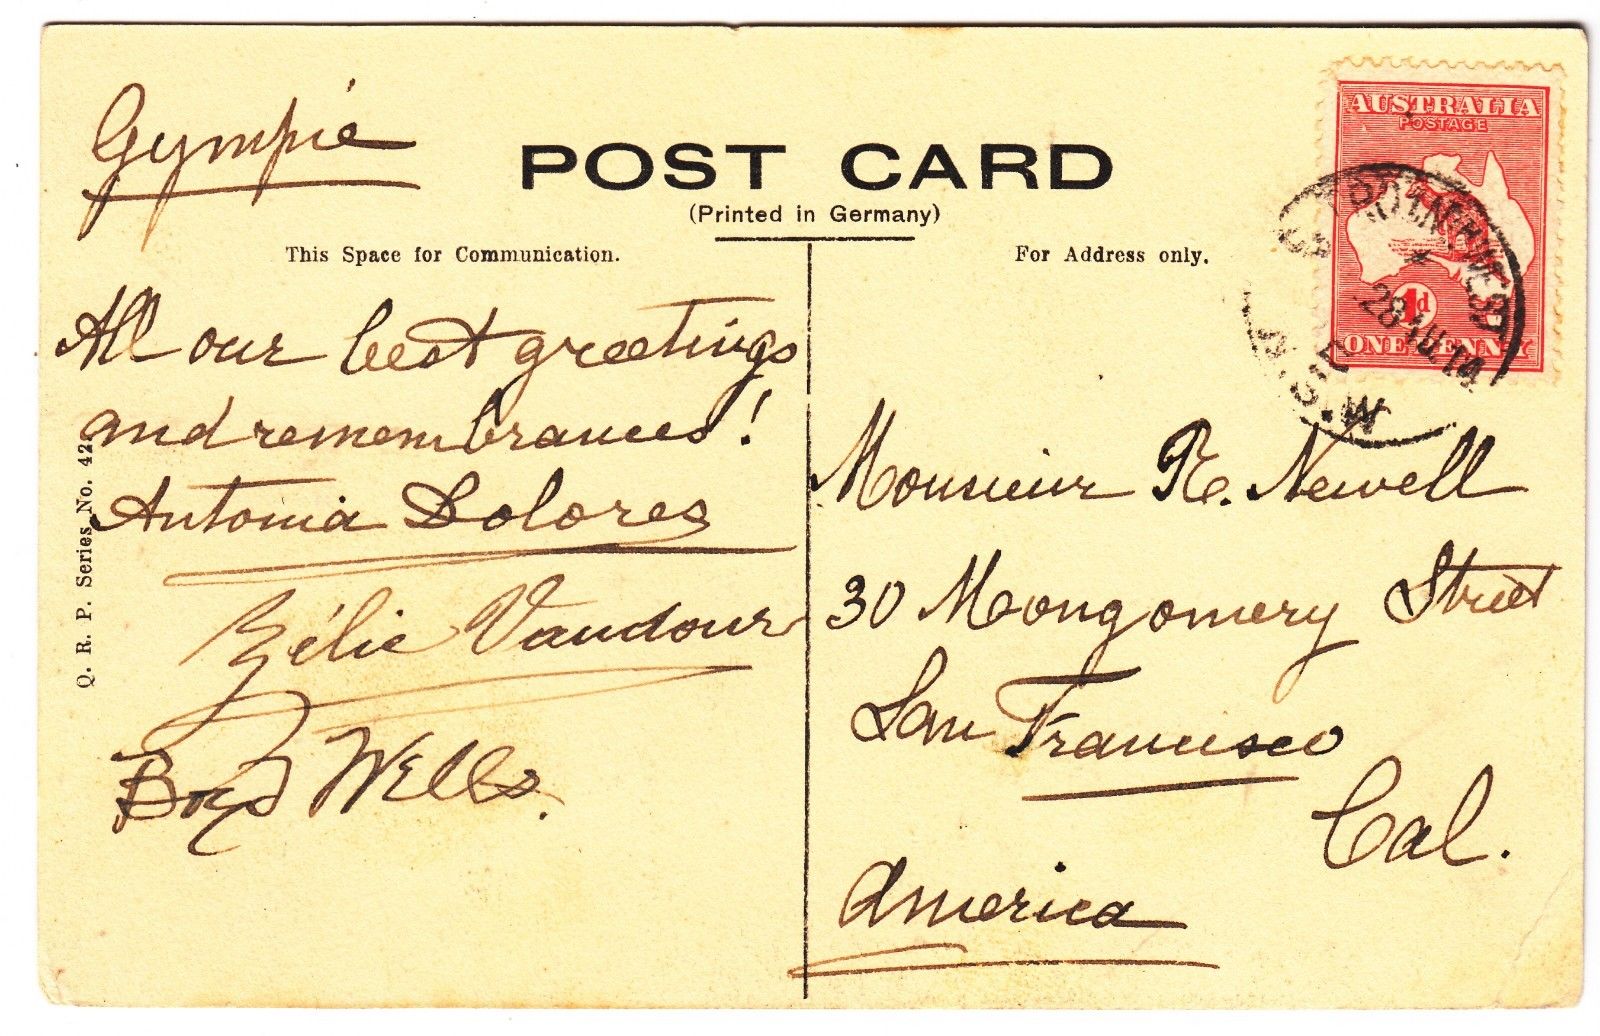 Gympie
POST CARD
(Printed in Germany)
This Space for Communication.
For Address only.
All our best greetings
and remembrances!
Antonia Dolores
Zélie Vaudour
Boyd Wells.
Q. R. P. Series No. 42
Monsieur R. Newell
30 Mongomery Street
San Francisco
Cal.
America
AUSTRALIA
POSTAGE
1d
ONE PENNY
28 JUL 14
N.S.W